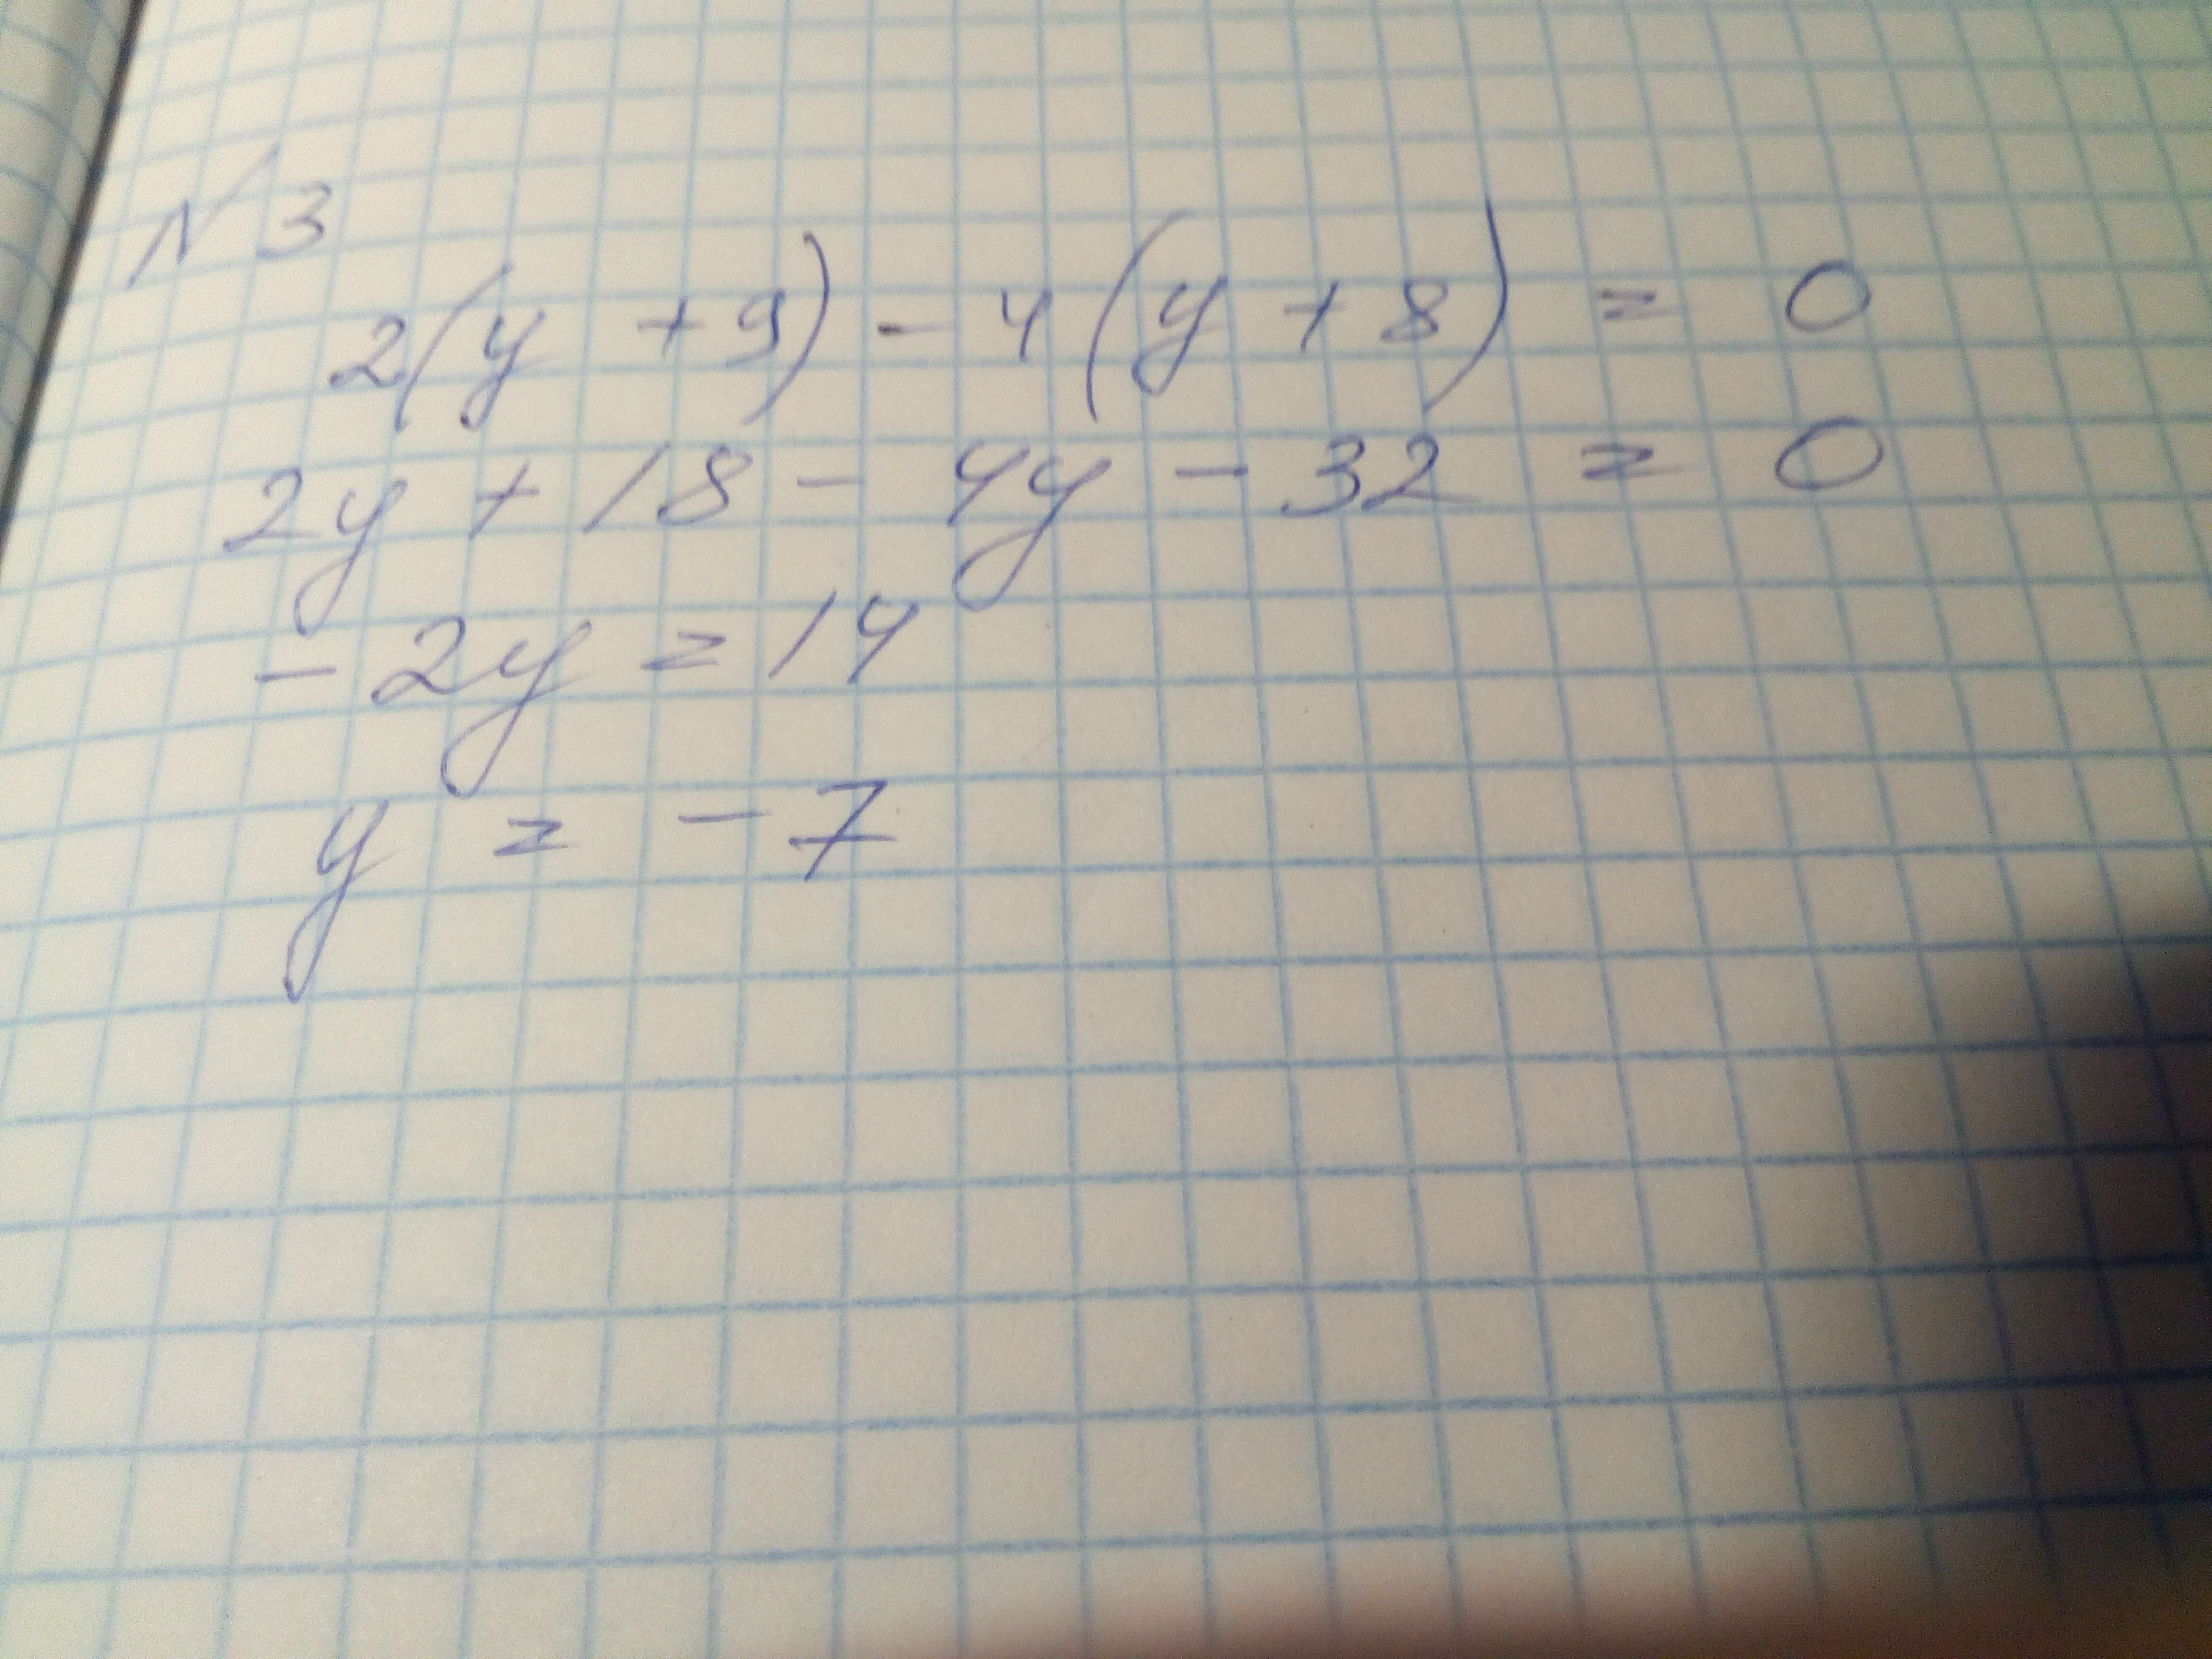 N 3
2(y + 9) - 4(y + 8) = 0
2y + 18 - 4y - 32 = 0
- 2y = 14
y = - 7